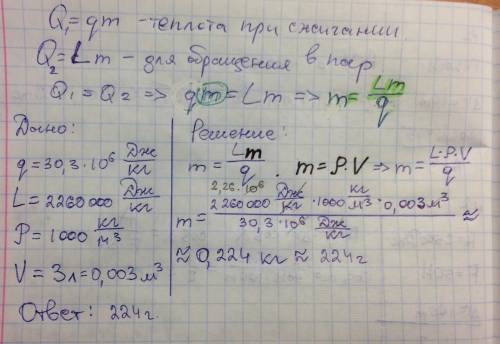 Q₁ = qm - теплота при сжигании.
Q₂ = Lm - для обращения в пар
Q₁ = Q₂ => qm = Lm => m = Lm/q
Дано:
q = 30,3·10⁶ Дж/кг
L = 2260000 Дж/кг
ρ = 1000 кг/м³
V = 3л = 0,003 м³
Ответ: 224г.
Решение:
m = Lm/q . m = ρ·V => m = L·ρ·V/q
2,26·10⁶
m = 2260000 Дж/кг · 1000 кг/м³ · 0,003 м³ / 30,3·10⁶ Дж/кг ≈
≈ 0,224 кг ≈ 224г